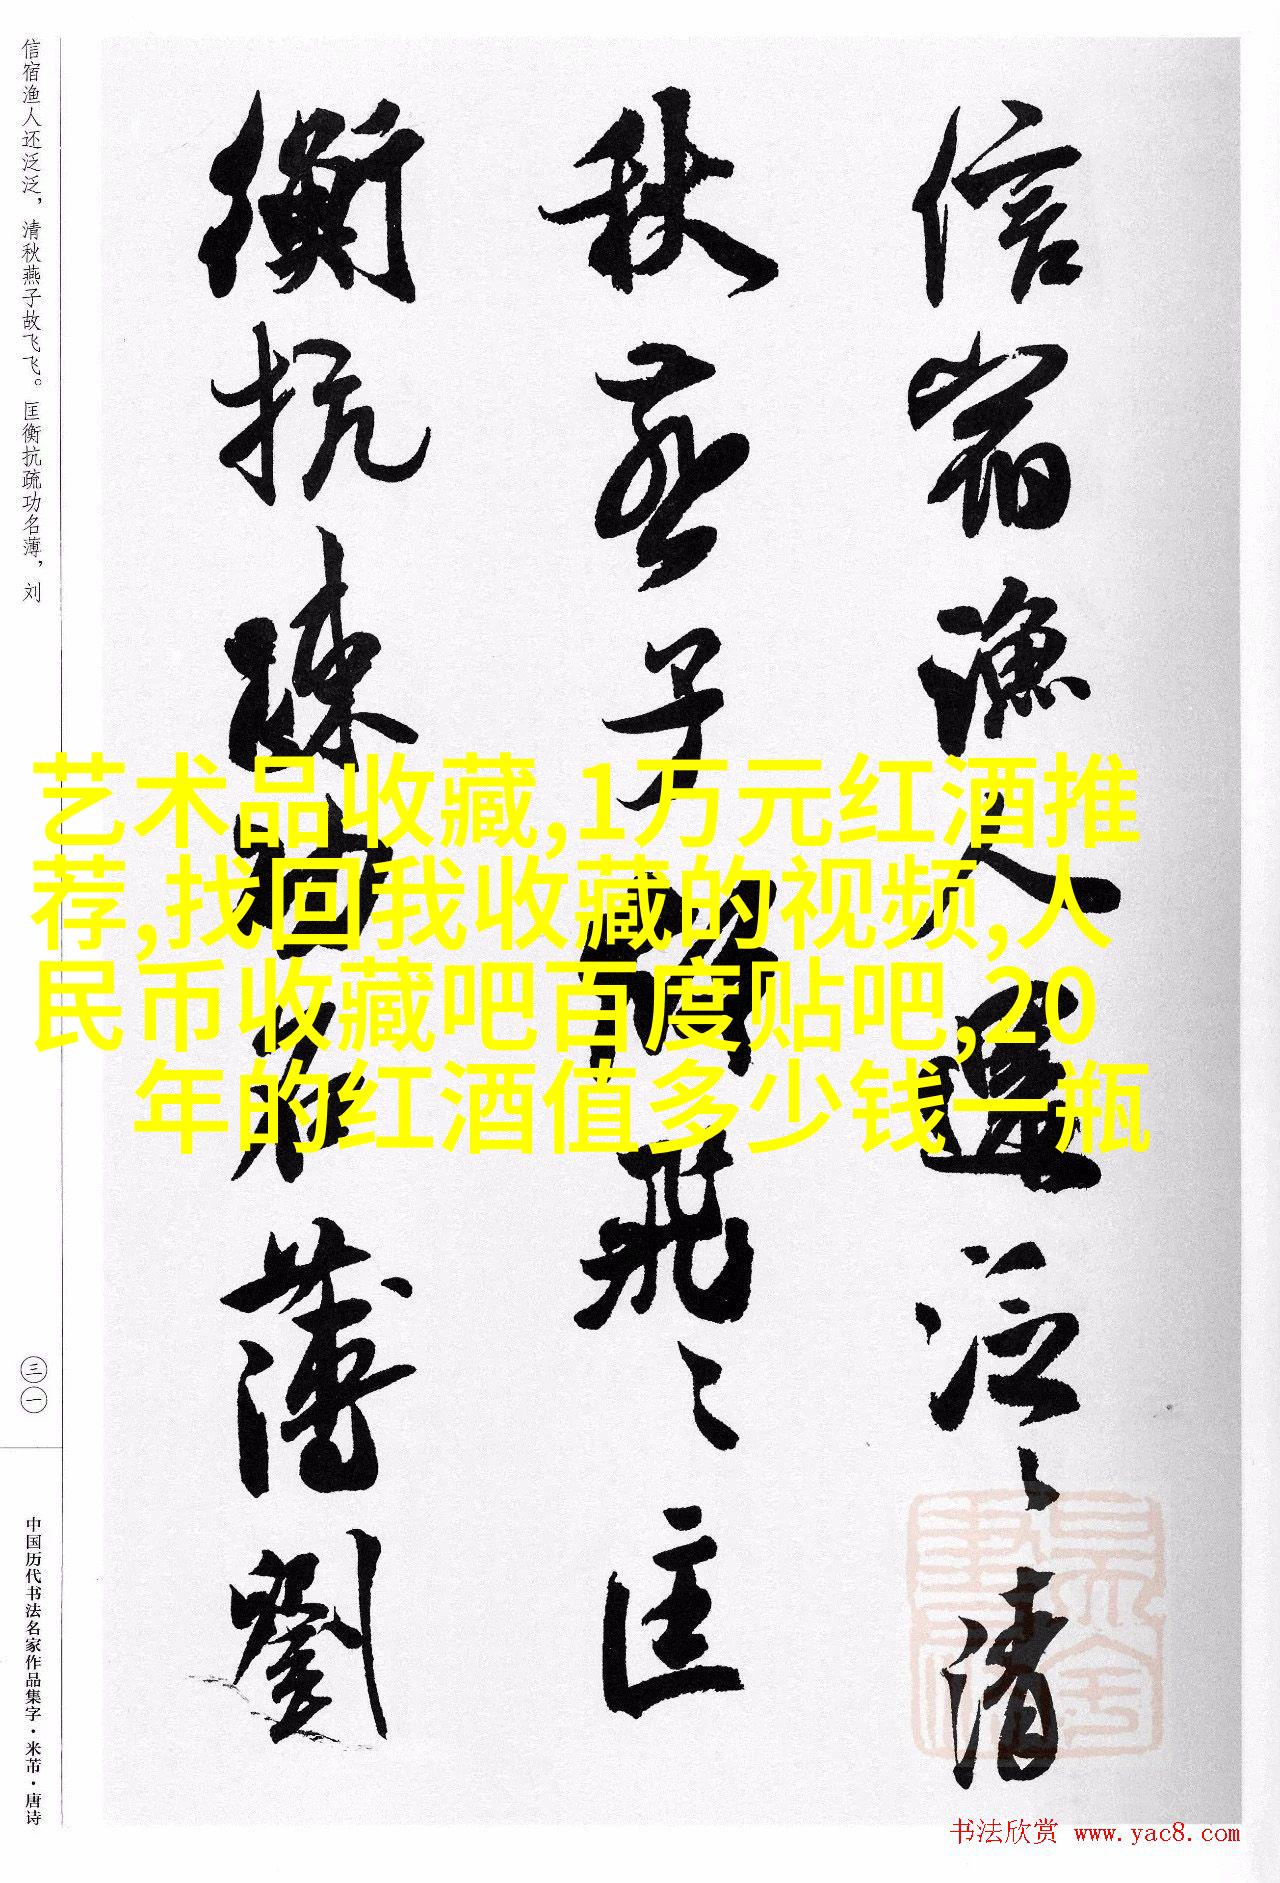 信宿渔人还泛泛，清秋燕子故飞飞。匡衡抗疏功名薄，刘
信宿漁人還泛〻清
秋燕子故飛〻匡
衡抗疏功名薄劉
艺术品收藏,1万元红酒推
荐,找回我收藏的视频,人
民币收藏吧百度贴吧,20
年的红酒值多少钱一瓶
三一
中国历代书法名家作品集字·米芾·唐诗
书法欣赏 www.yac8.com